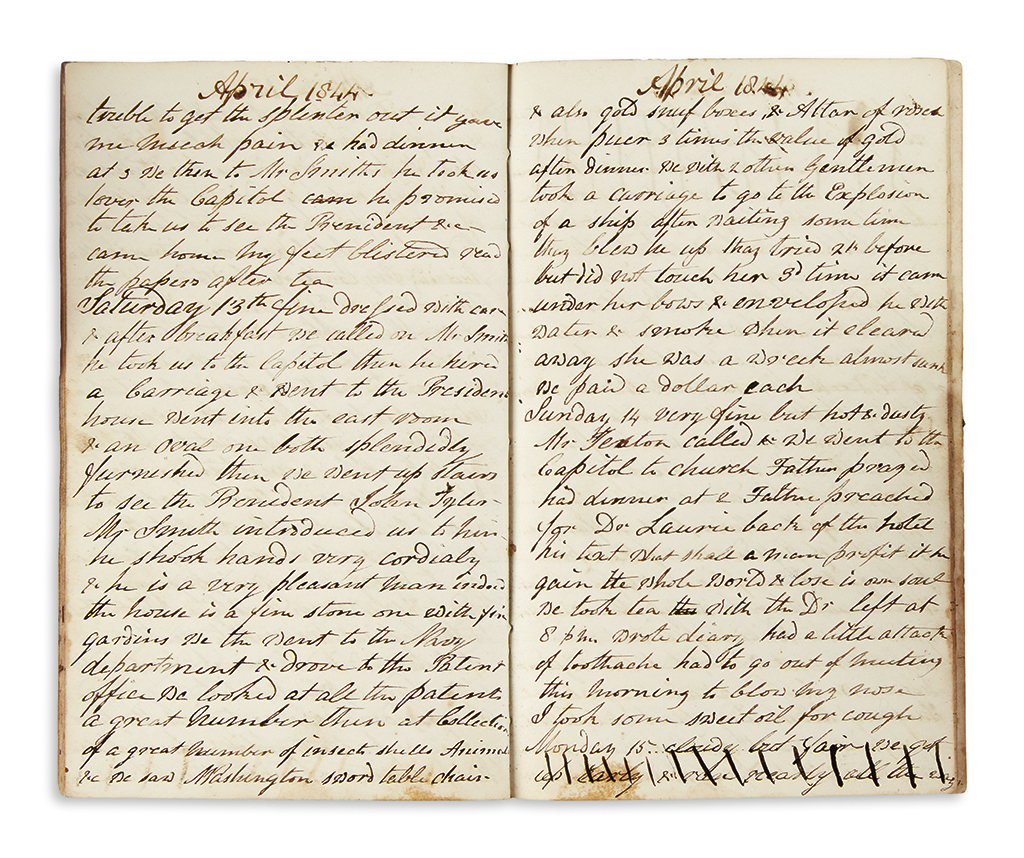 April 1844
touble to get the splenter out it gave
me Much pain & had dinner
at 3 We then to Mr Smiths he took us
over the Capitol came he promised
to take us to see the President &c
came home My feet blistered read
the papers after tea
Saturday 13th fine dressed with care
& after breakfast we called on Mr Smith
he took us to the Capitol then he hired
a Carriage & Went to the President
house Went into the east room
& an oval one both splendidly
furnished then We Went up Stairs
to see the President John Tyler
Mr Smith introduced us to him
he shook hands very cordialy
& he is a very pleasant man indeed
the house is a fine stone one with fine
gardins We the Went to the Navy
department & drove to the Patent
office We looked at all the patents
a great Number then at Collection
of a great Number of insects shells Animal
&c We saw Washington sword table chair
April 1844
& also gold snuf boxes & Attar of roses
When puer 3 times the value of gold
after dinner We With 2 other Gentlemen
took a carriage to go to the Explosion
of a ship after Waiting some time
they blew he up they tried 2 before
but did not touch her 3d time it came
under her bows & enveloped he With
Water & smoke When it cleared
away she Was a Wreck almost sunk
We paid a dollar each
Sunday 14 very fine but hot & dusty
Mr Fenton called & We Went to the
Capitol to church Father prayed
had dinner at 2 Father preached
for Dr Laurie back of the hotel
his text What shall a man profit if he
gain the Whole World & lose is own soul
We took tea the With the Dr left at
8 pm Wrote diary had a little attack
of toothache had to go out of meeting
this morning to blow my nose
I took some sweet oil for cough
Monday 15 cloudy but Warm We got
up early & nearly all the